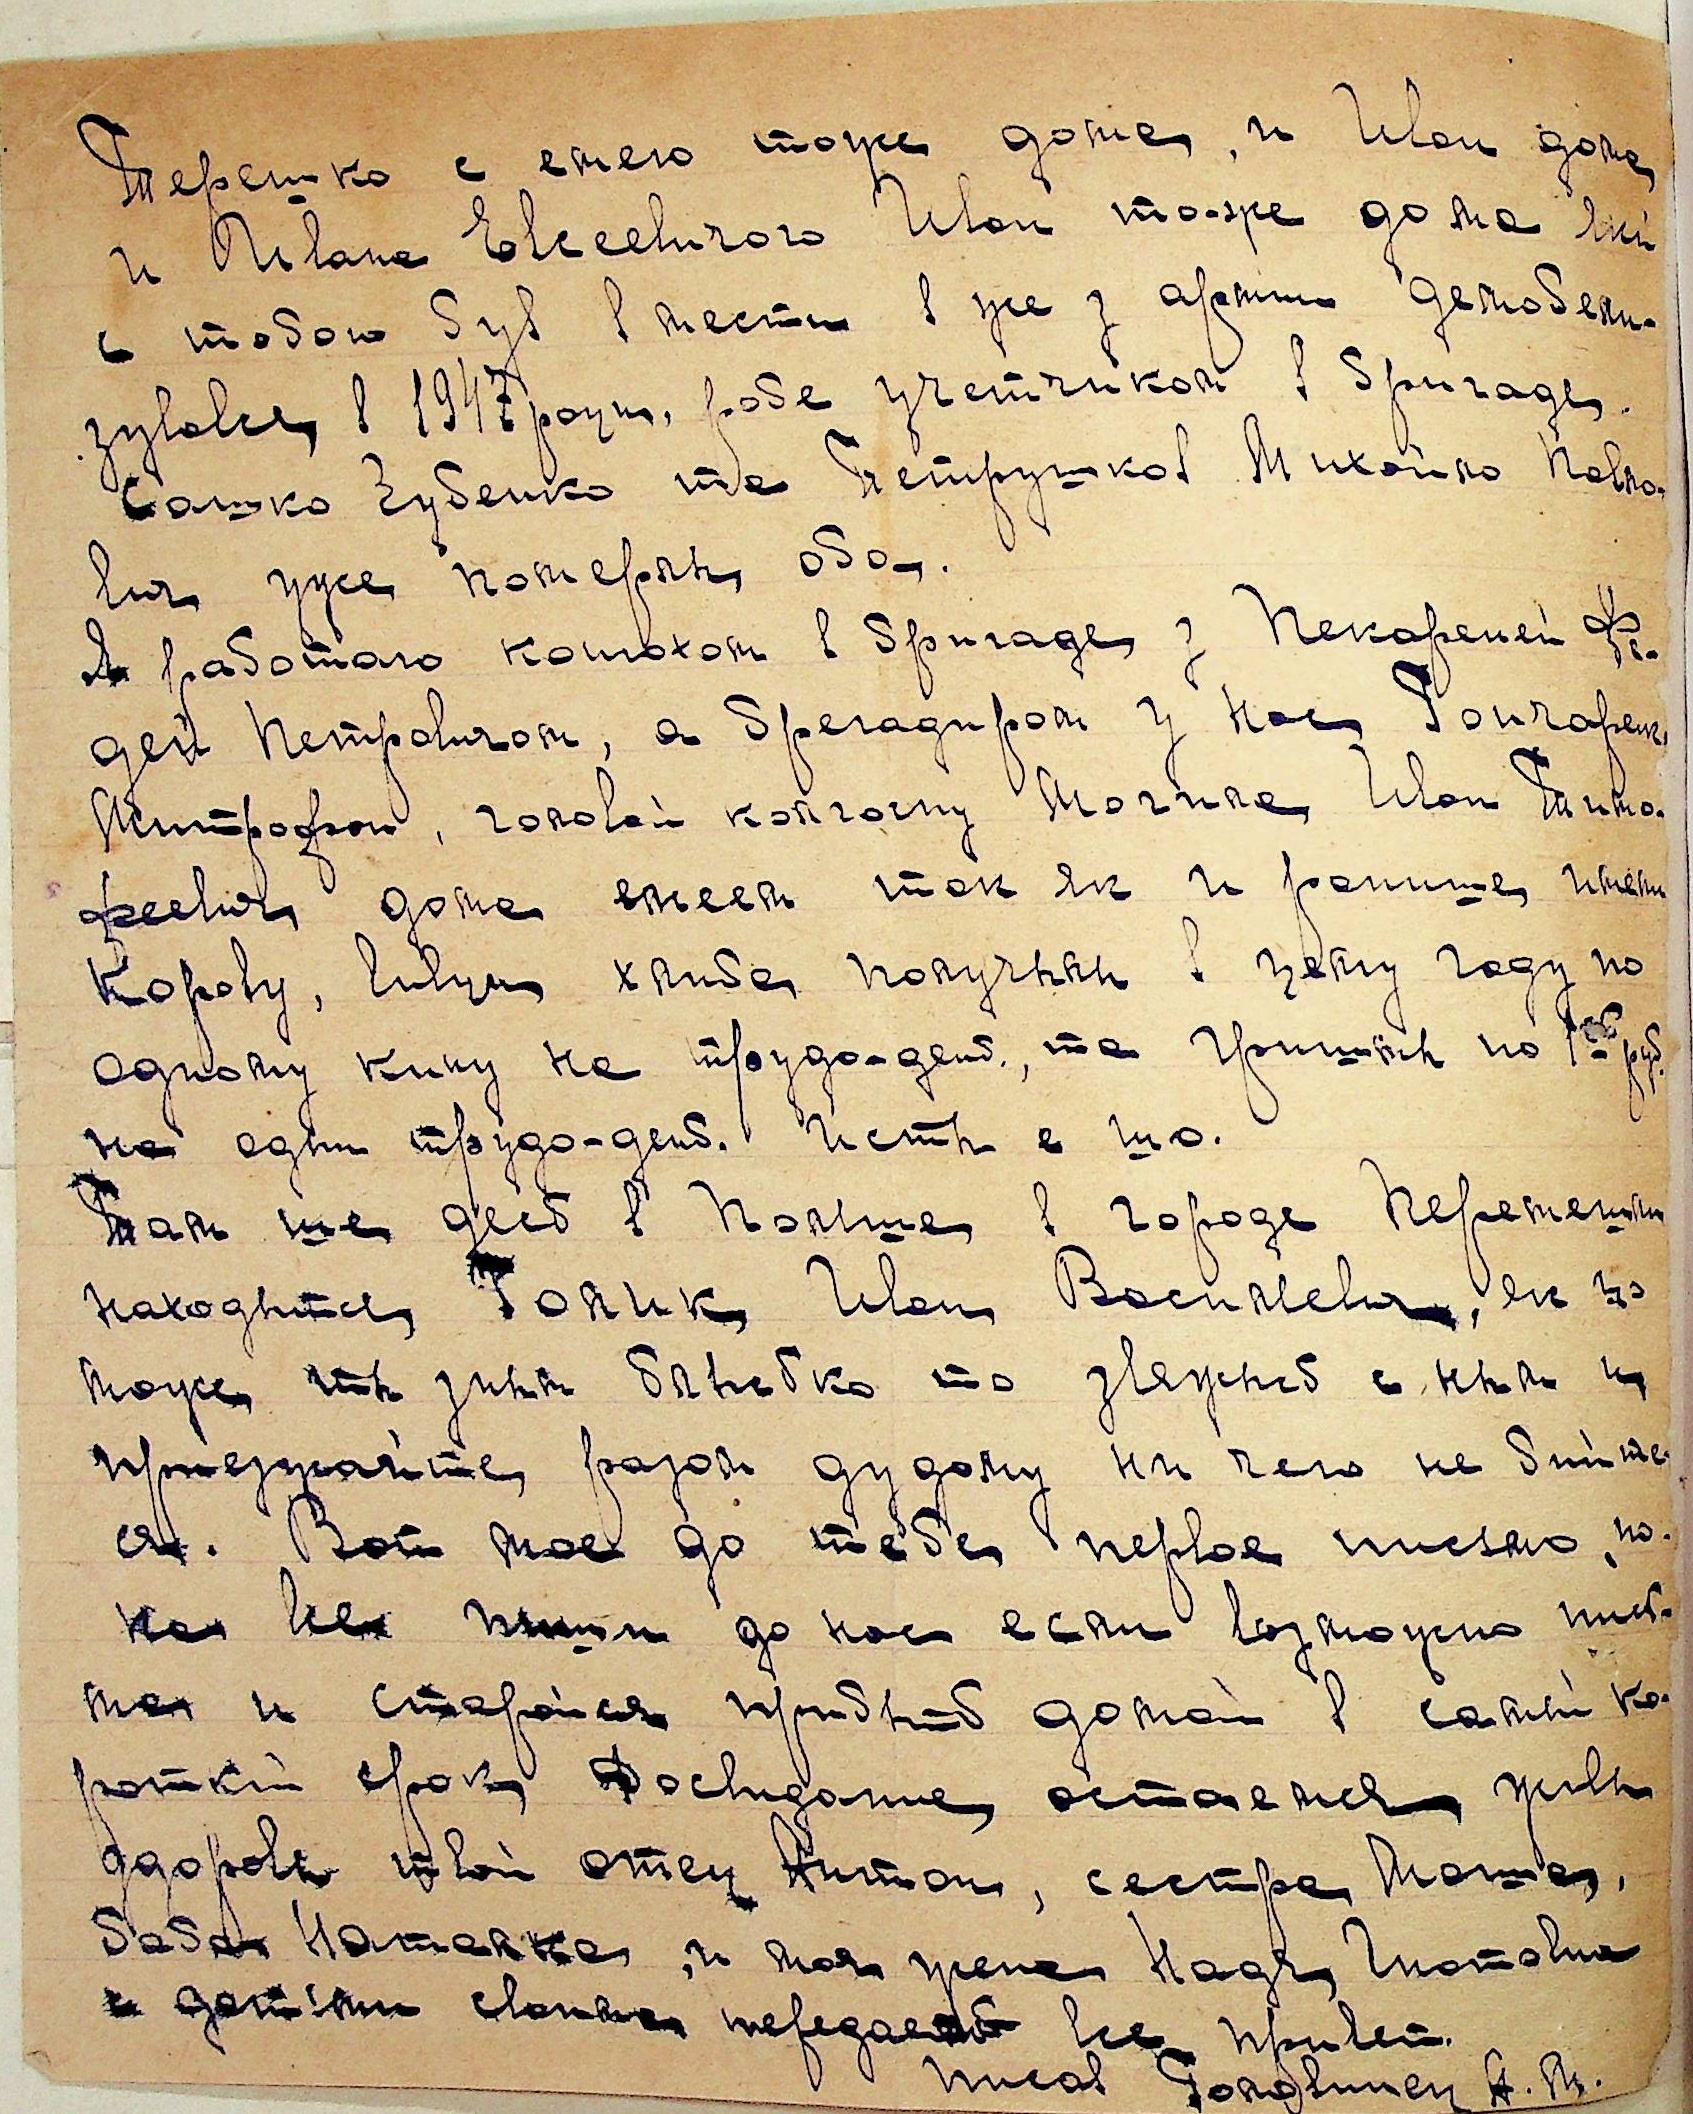 Терешко с емею тоже дома, и Иван дома,
и Милана Евсеевичого Иван то-же дома які
с тобою був вмести в уже з армии демобели-
зувався в 1947 роуи, робе учетчиком в бригаде.
Сашко Зубенко та Петрушков Михайло Павло-
вич уже померлы оба.
Я работаю конюхом в бригаде з Пекареней Фа-
дей Петровичом, а брегадиром у нас Гончарен.
Митрофан, головой колгоспу Могила Иван Тимо-
феевич дома емеем так як и ранише имем
Корову, вивци хлиба получылы в цему году по
одному килу на трудо-день, та грошмы по 1 руб.
на один трудо-день. Исты е шо.
Там же десь в Польше в городе Перемешли
находытся Голик Иван Васильевич, як що
може ты знин блызько то звяжысь с ным и
приезжайте разом дудому ни чего не бийте-
ся. Вот мое до тебе первое письмо, по-
ка все пиши до нас если возможно пись-
ма и старайся прибыть домой в самый ко-
роткий срок, Досвидание, остаемся живы
здоровы твой отец Антон, сестра Маша,
баба Наталка, и моя жена Надя, Игнатовна
с детями своими передаеть все привет.
писав Голдвинец А. М.